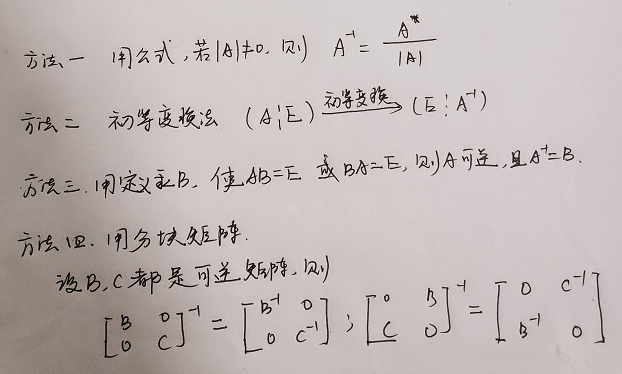 方法一 用公式,若|A|≠0,则 A⁻¹ = A*/|A|
方法二 初等变换法 (A¦E) 初等变换→ (E¦A⁻¹)
方法三.用定义求B,使AB=E 或BA=E,则A可逆,且A⁻¹=B.
方法四.用分块矩阵.
设B,C都是可逆矩阵,则
[B 0; 0 C]⁻¹ = [B⁻¹ 0; 0 C⁻¹] ; [0 B; C 0]⁻¹ = [0 C⁻¹; B⁻¹ 0]